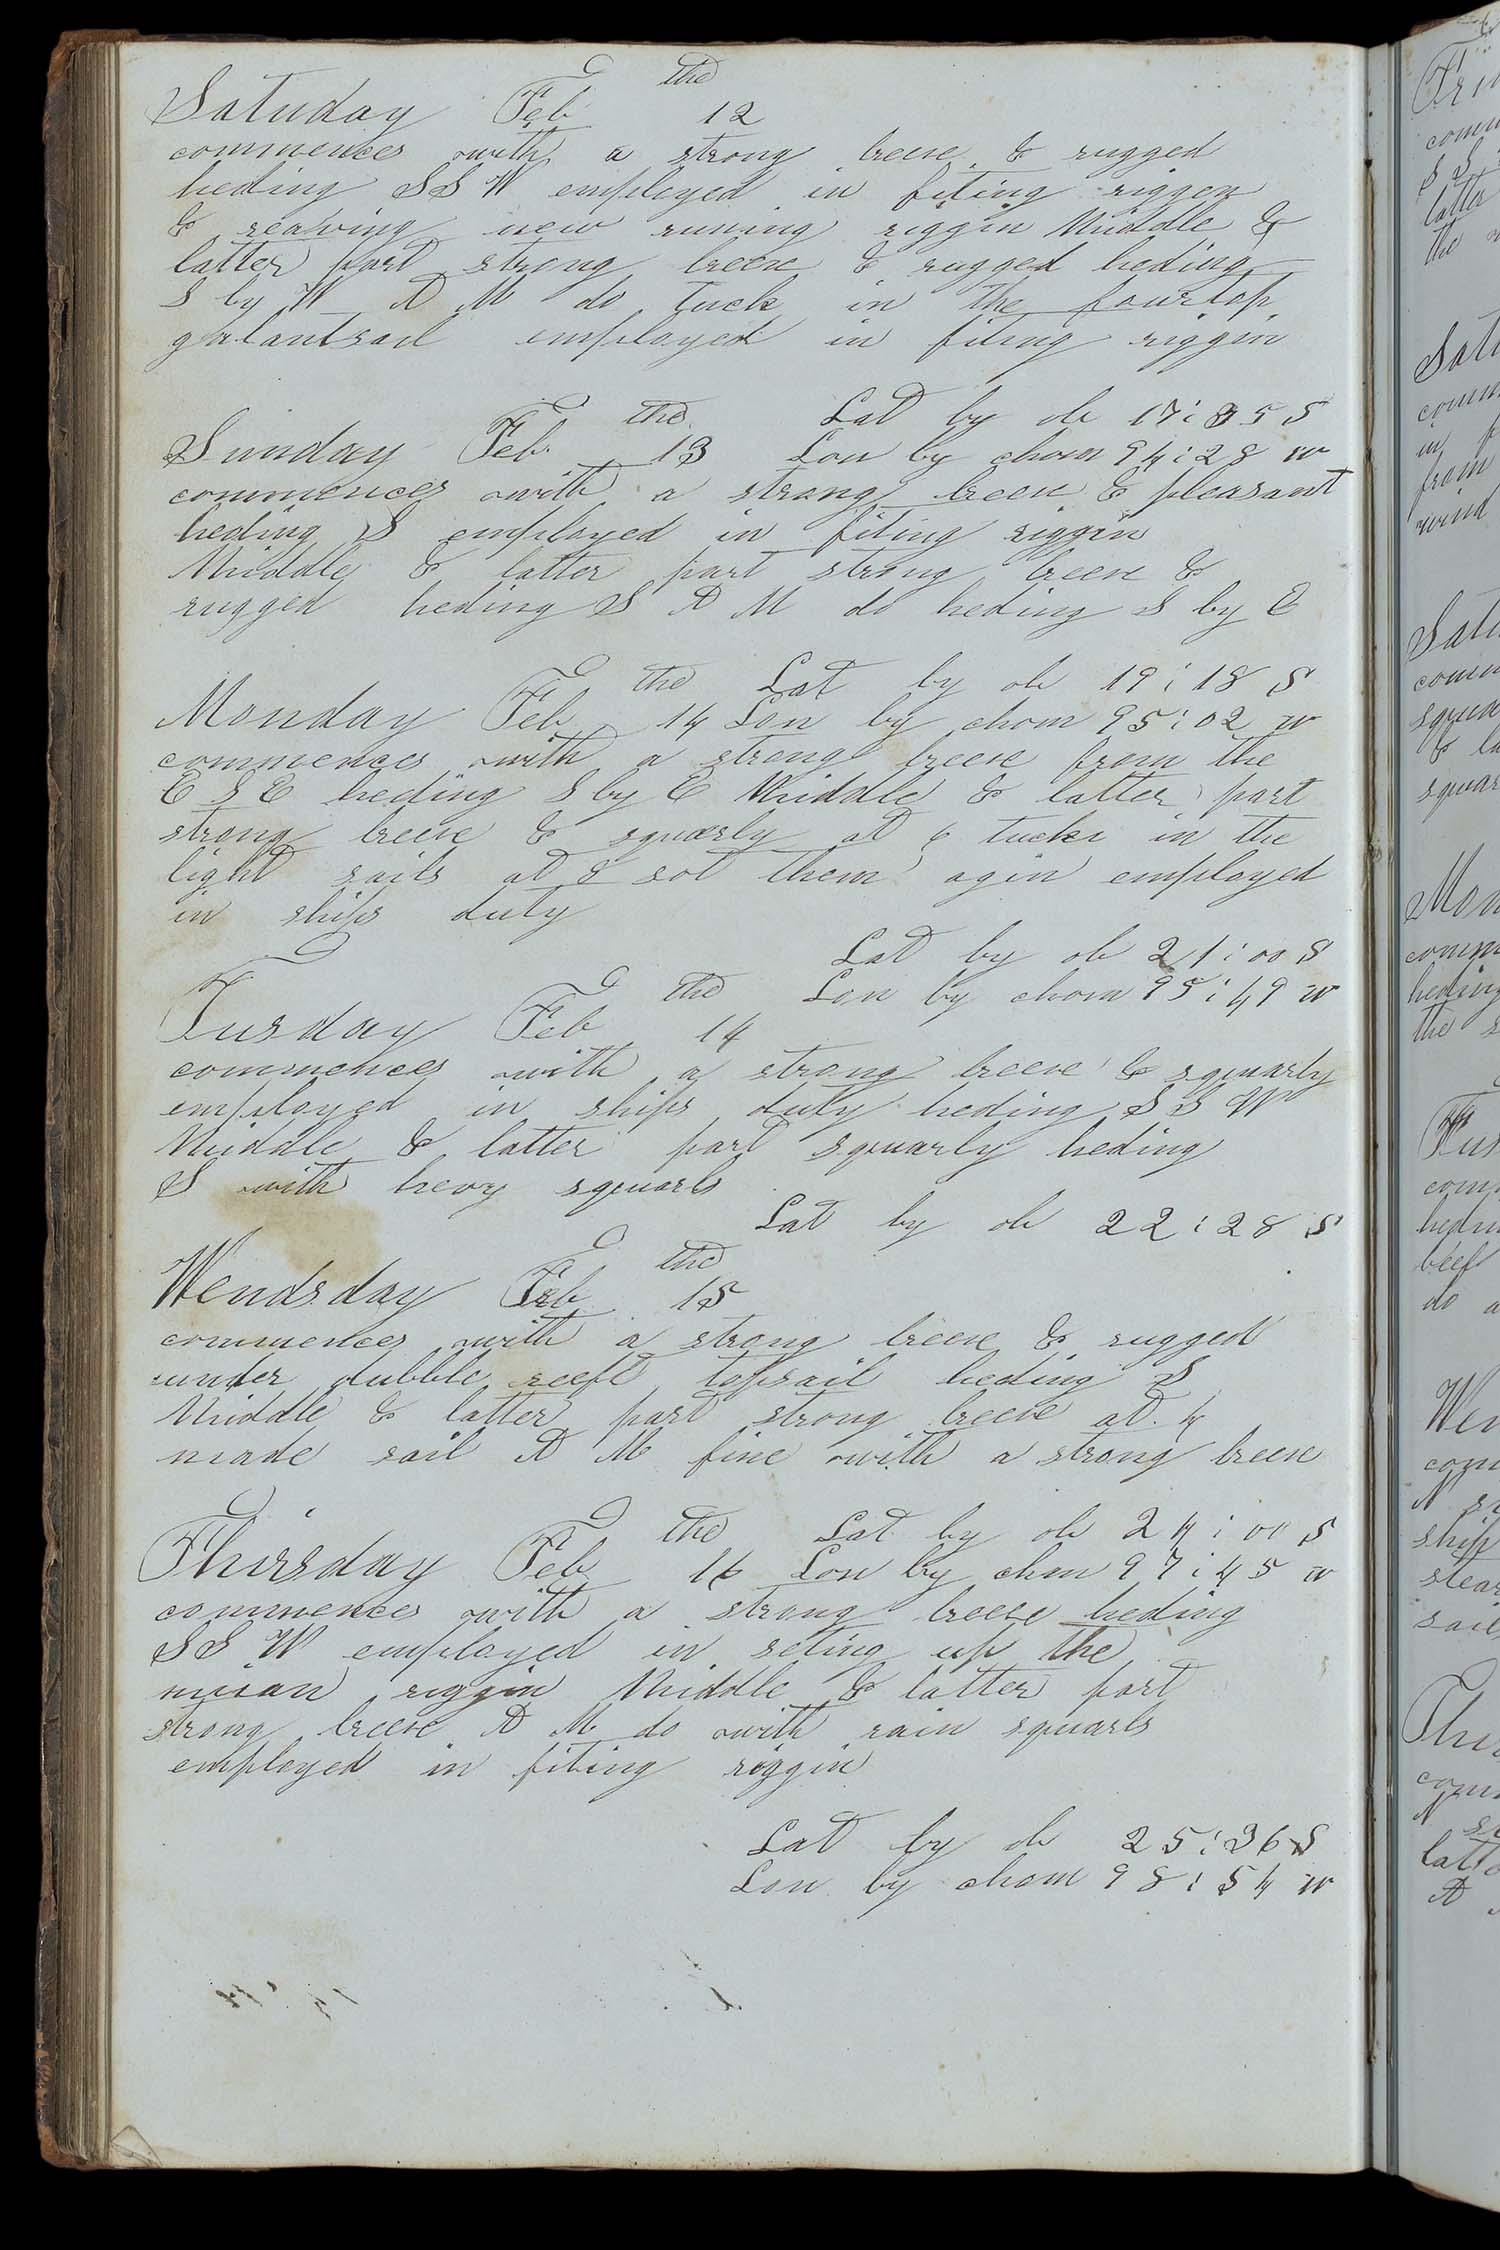 Satuday Feb the 12
commences with a strong breese & rugged
heding S S W employed in fiting riggen
& reaving new runing riggin Middle &
latter part strong breese & rugged heding
S by W A M do tuck in the fourtop
galantsail employed in fiting riggin
Lat by ob 17:35 S
Sunday Feb the 13 Lon by chom 94:28 w
commences with a strong breese & pleasant
heding S employed in fiting riggin
Middle & latter part strong breese &
rugged heding S A M do heding S by E
Lat by ob 19:18 S
Monday Feb the 14 Lon by chom 95:02 w
commences with a strong breese from the
E S E heding S by E Middle & latter part
strong breese & squarly at 6 tucke in the
light sails at 8 sot them agin employed
in ships duty
Lat by ob 21:00 S
Tusday Feb the 14 Lon by chom 95:49 w
commences with a strong breese & squarly
employed in ships duty heding S S W
Middle & latter part squarly heding
S with hevy squarls
Lat by ob 22:28 S
Wendsday Feb the 15
commences with a strong breese & rugged
under dubble reeft topsail heding S
Middle & latter part strong breese at 4
made sail A M fine with a strong breese
Lat by ob 24:00 S
Thirsday Feb the 16 Lon by chm 97:45 w
commences with a strong breese heding
S S W employed in seting up the
misan riggin Middle & latter part
strong breese A M do with rain squarls
employed in fiting riggin
Lat by ob 25:36 S
Lon by chom 98:54 w